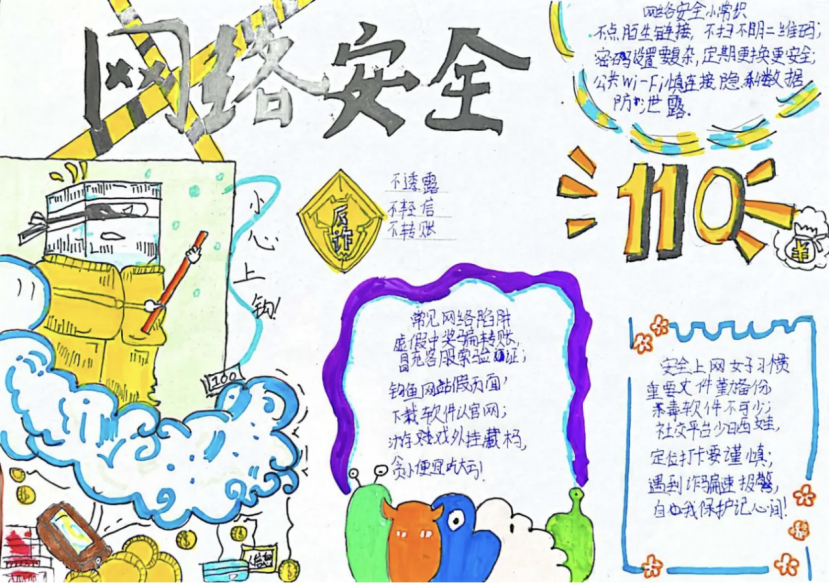 网络安全
网络安全小常识
不点陌生链接，不扫不明二维码；
密码设置要复杂，定期更换更安全；
公共Wi-Fi慎连接隐私数据
防泄露.
110
¥
小心上钩!
反诈
不透露
不轻信
不转账
100
常见网络陷阱
虚假中奖骗转账，
冒充客服索验证；
钓鱼网站假页面，
下载软件认官网；
游戏外挂藏
贪小便宜吃大亏!
安全上网好习惯
重要文件勤备份
杀毒软件不可少；
社交平台少晒娃，
定位打卡要谨慎；
遇到诈骗速报警，
自我保护记心间!